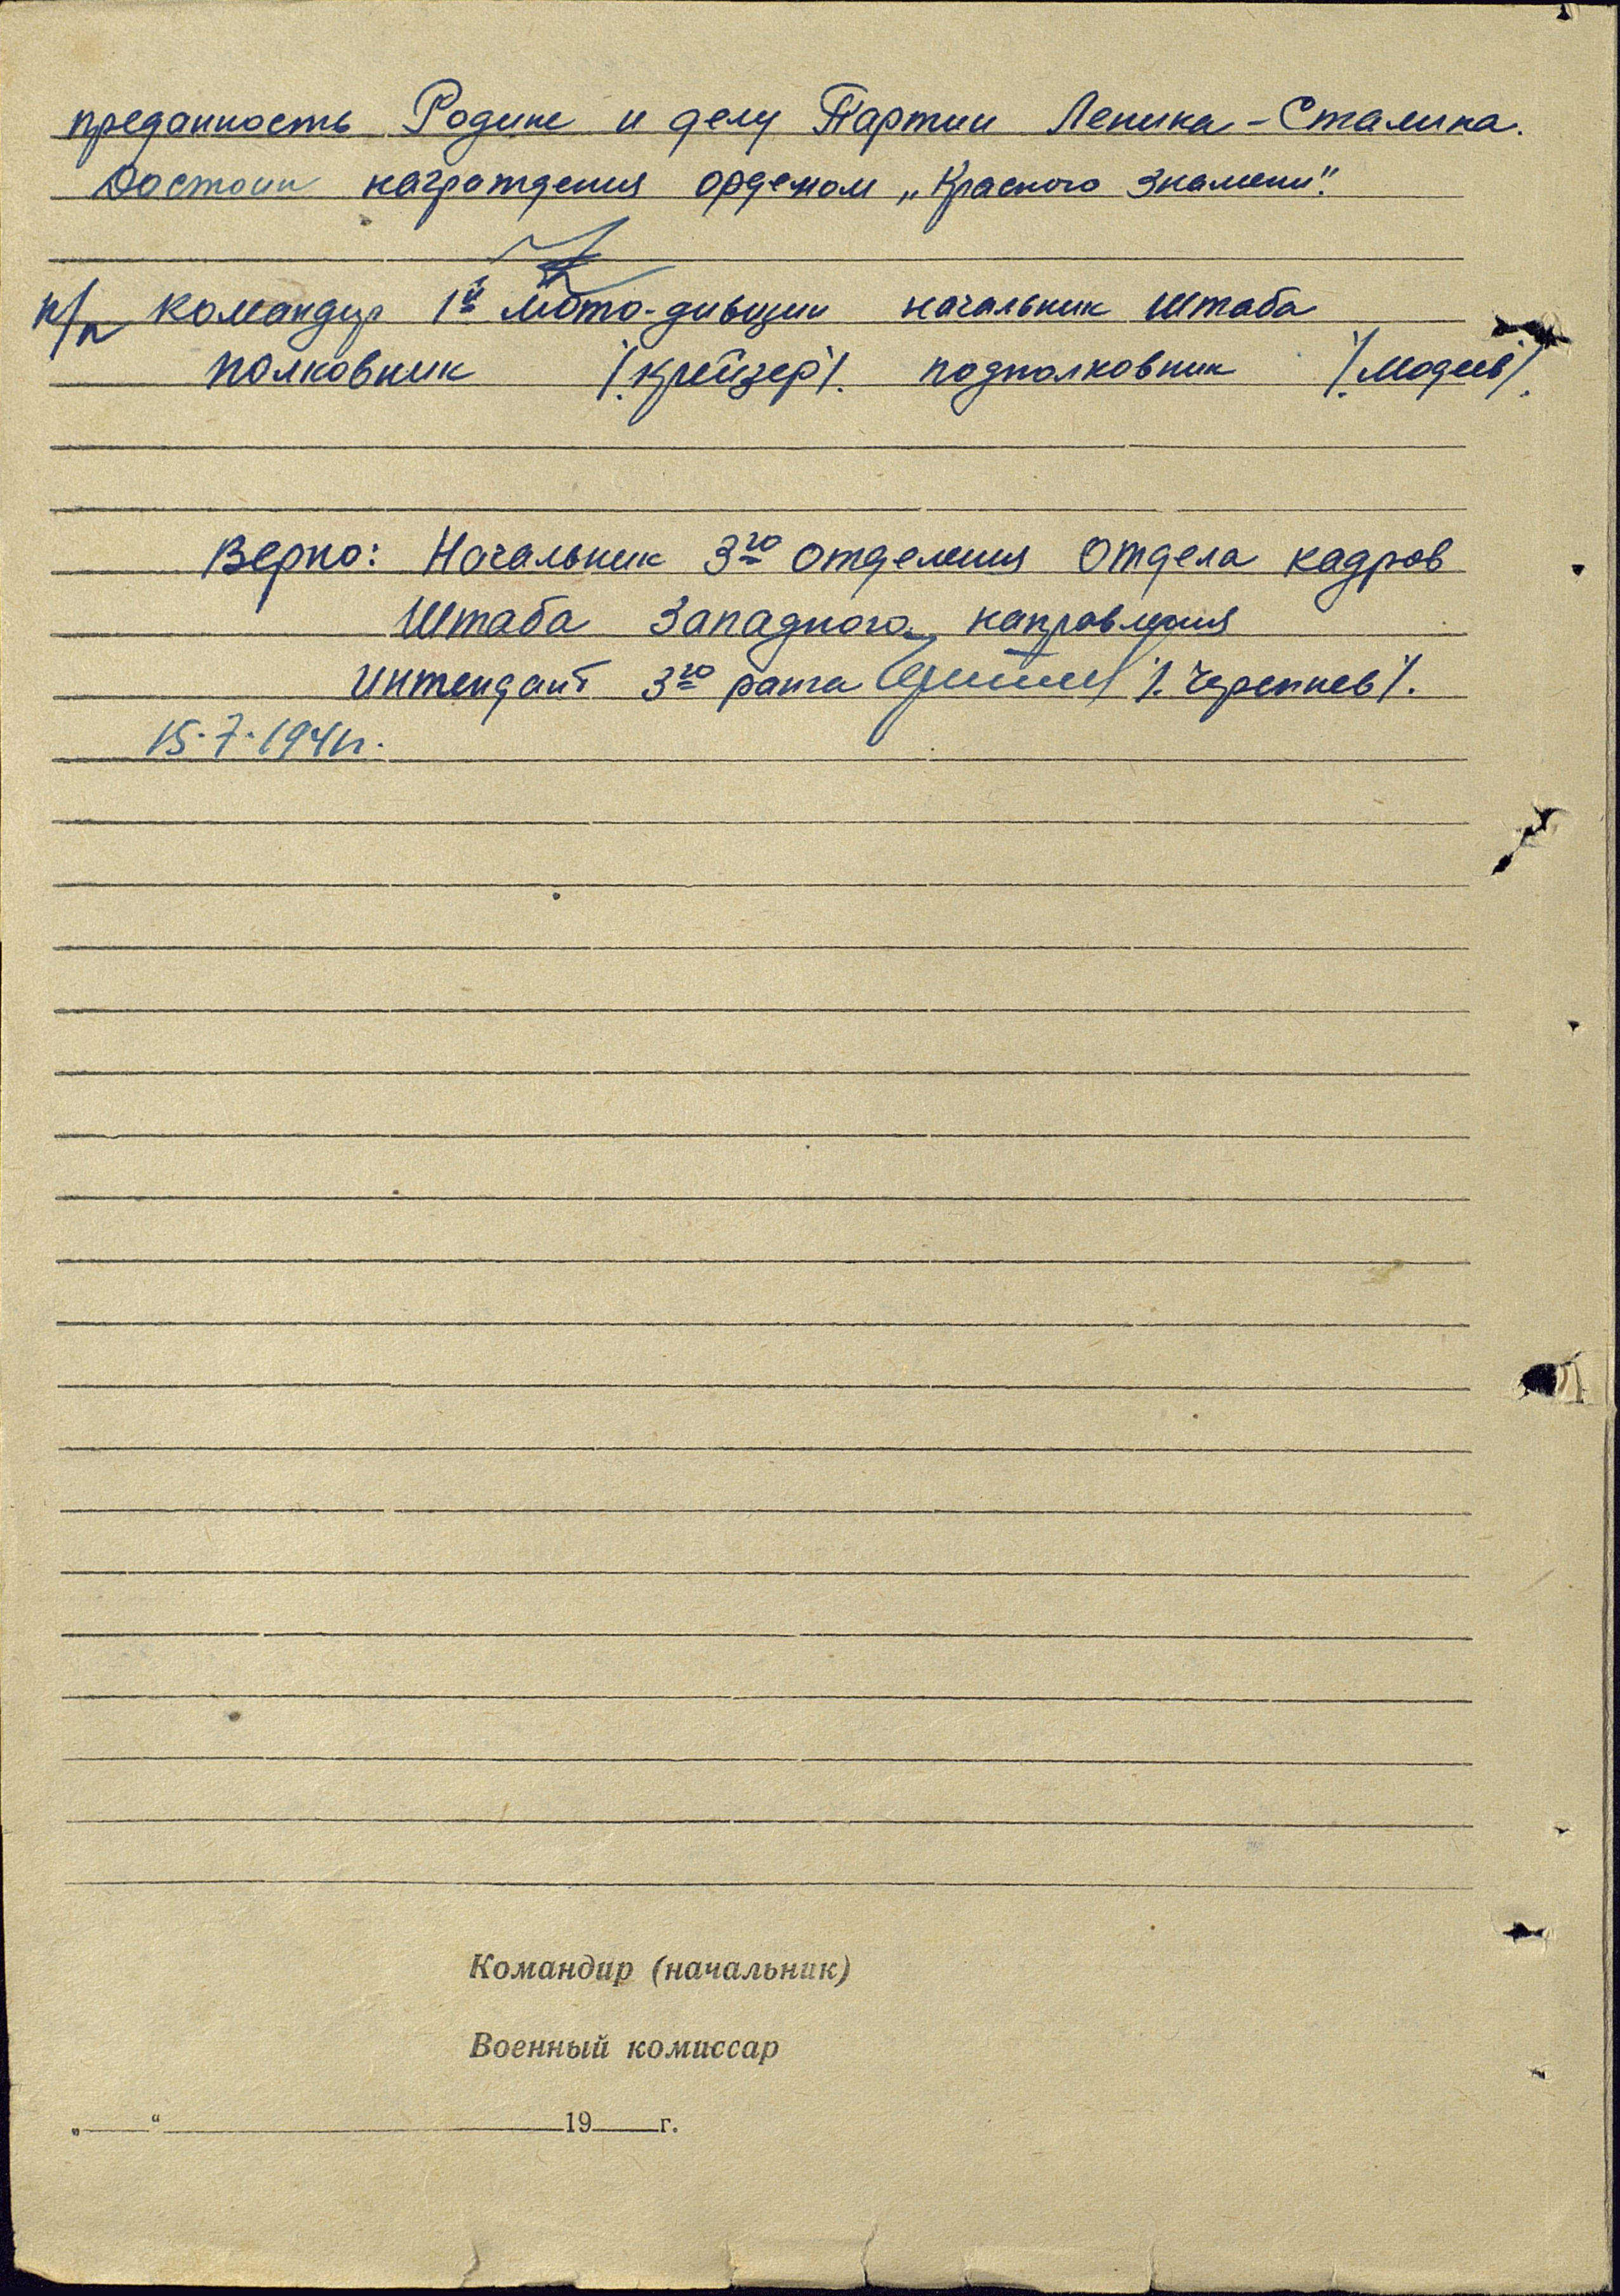 преданность Родине и делу Партии Ленина-Сталина.
Достоин награждения орденом „Красного Знамени".
п/п Командир 1й мото-дивизии начальник штаба
полковник /.Крейзер/. подполковник /.Модеев/.
Верно: Начальник 3го отделения Отдела кадров
Штаба Западного направления
Интендант 3го ранга /.Черепнев/.
15.7.1941г.
Командир (начальник)
Военный комиссар
„ “ 19 г.